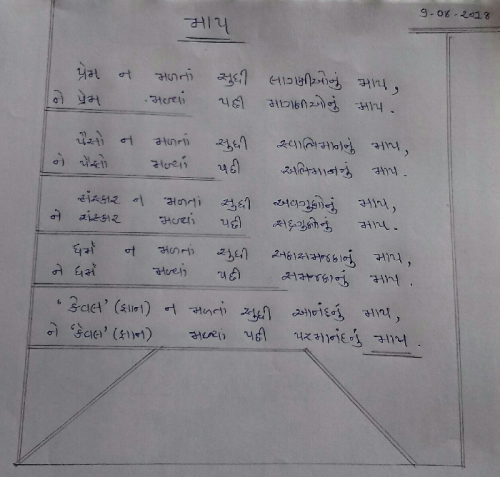 9-08-2018
માપ
પ્રેમ ન મળતાં સુધી લાગણીઓનું માપ,
ને પ્રેમ મળ્યાં પછી માગણીઓનું માપ.
પૈસો ન મળતાં સુધી સ્વાભિમાનનું માપ,
ને પૈસો મળ્યાં પછી અભિમાનનું માપ.
સંસ્કાર ન મળતાં સુધી અવગુણોનું માપ,
ને સંસ્કાર મળ્યાં પછી સદ્દગુણોનું માપ.
ધર્મ ન મળતાં સુધી અણસમજણનું માપ,
ને ધર્મ મળ્યાં પછી સમજણનું માપ.
'કેવલ' (જ્ઞાન) ન મળતાં સુધી આનંદનું માપ,
ને 'કેવલ' (જ્ઞાન) મળ્યા પછી પરમાનંદનું માપ.